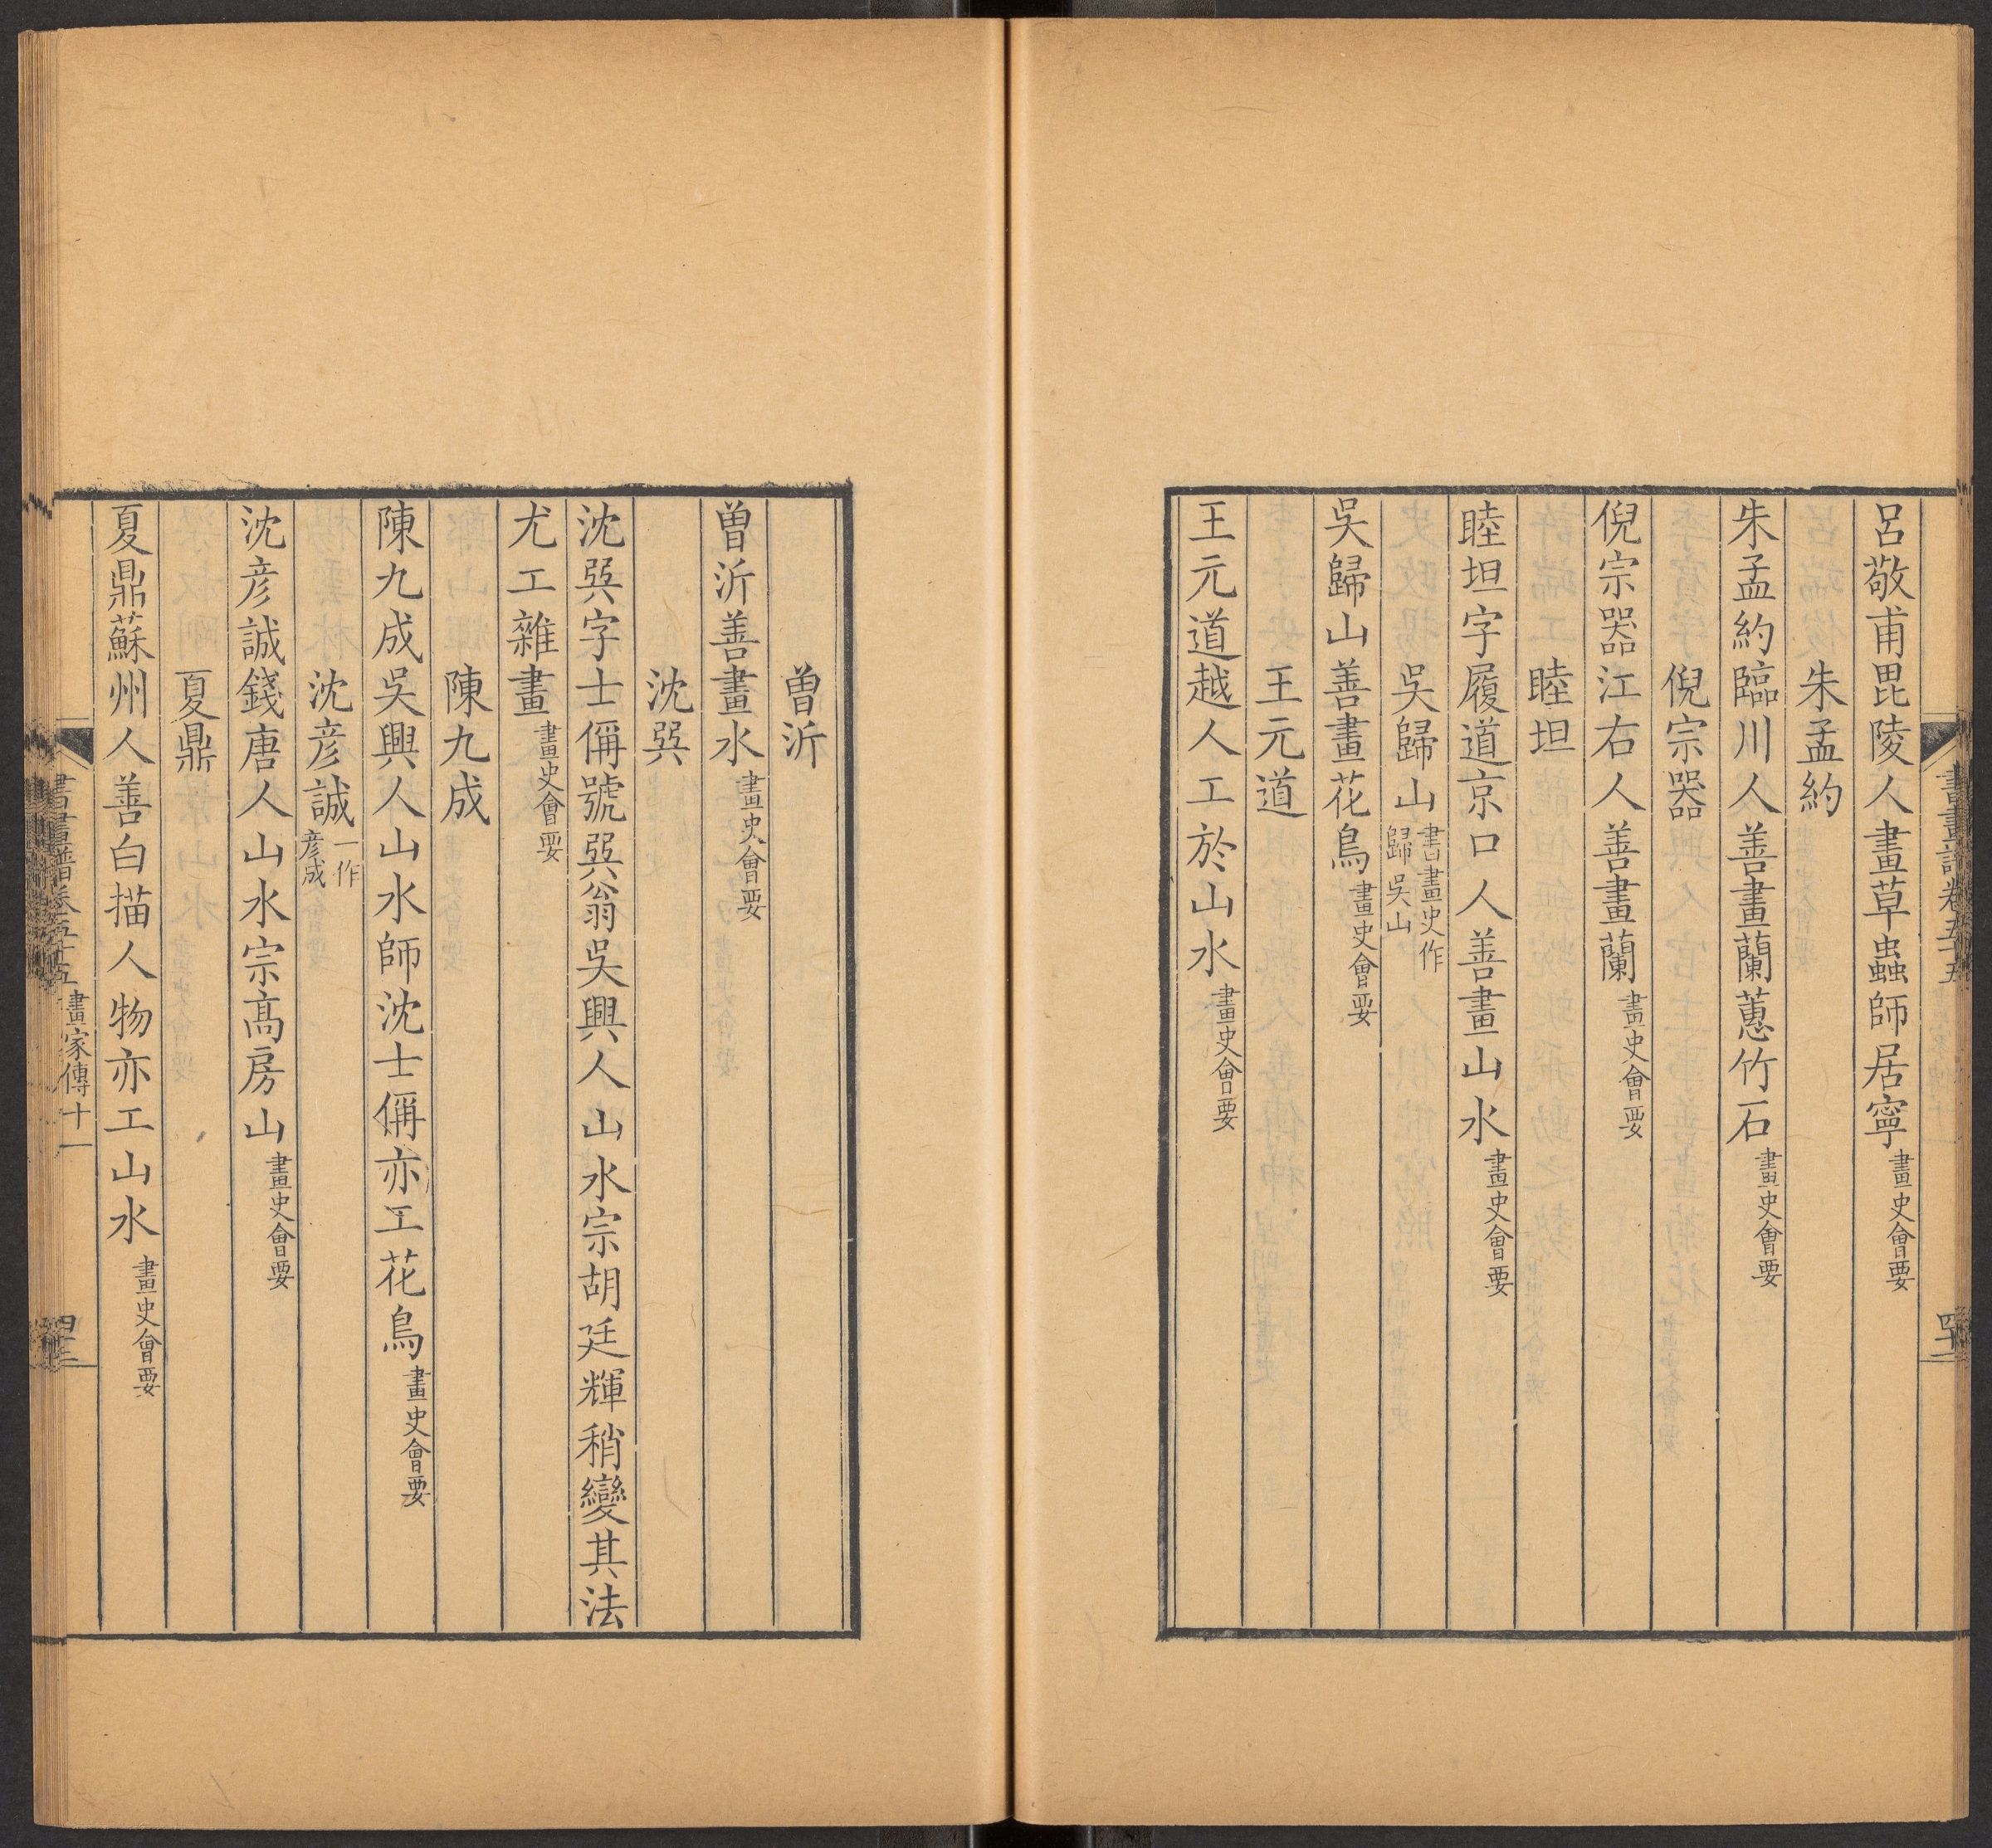 呂敬甫毘陵人畫草蟲師居寧畫史會要
朱孟約
朱孟約臨川人善畫蘭蕙竹石畫史會要
倪宗器
倪宗器江右人善畫蘭畫史會要
睦坦
睦坦字履道京口人善畫山水畫史會要
吳歸山書畫史作歸吳山
吳歸山善畫花鳥畫史會要
王元道
王元道越人工於山水畫史會要
曽沂
曽沂善畫水畫史會要
沈㢲
沈㢲字士偁號㢲翁吳興人山水宗胡廷輝稍變其法
尤工雜畫畫史會要
陳九成
陳九成吳興人山水師沈士偁亦工花鳥畫史會要
沈彥誠一作彥成
沈彥誠錢唐人山水宗高房山畫史會要
夏鼎
夏鼎蘇州人善白描人物亦工山水畫史會要
書畫譜卷五十五 畫家傳十一